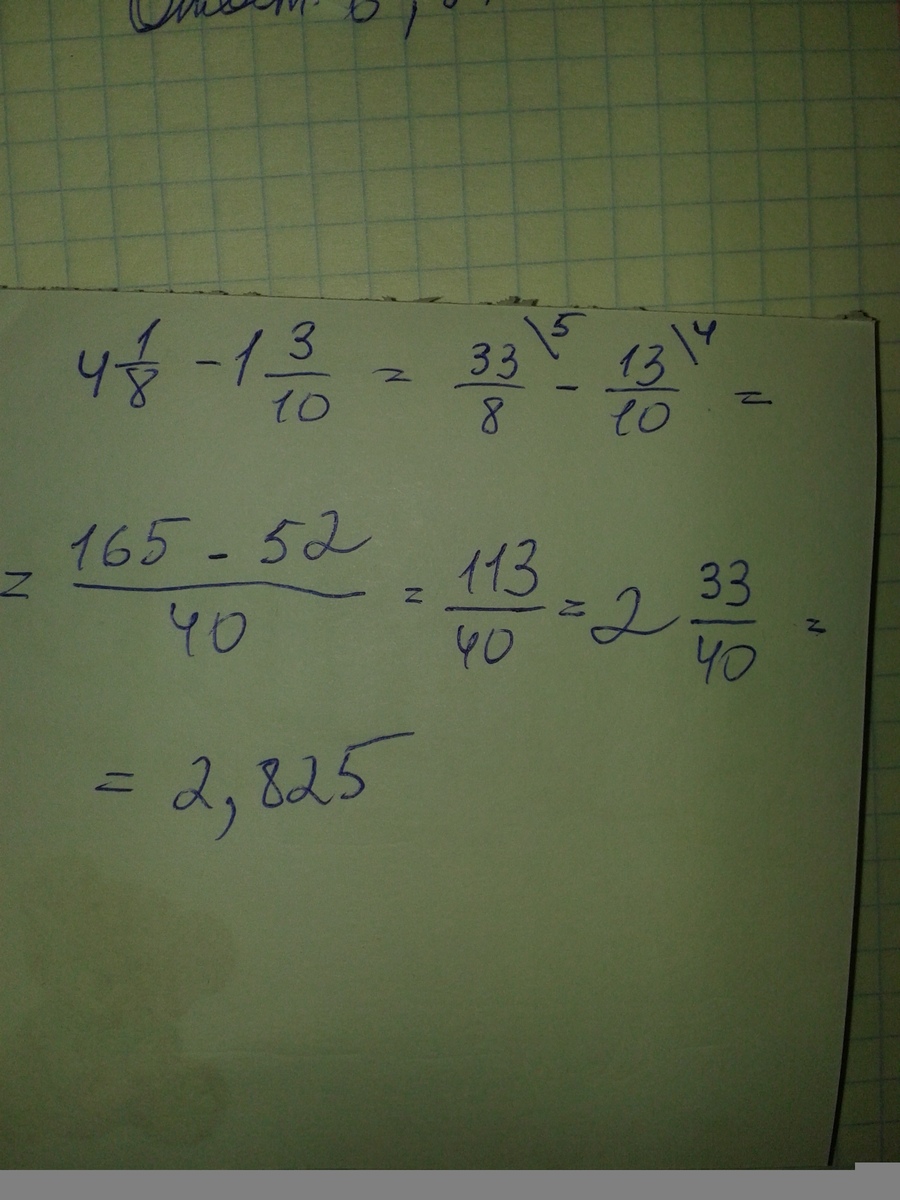 Ответ: 6,
4 1/8 - 1 3/10 = 33/8 \5 - 13/10 \4 =
= 165 - 52/40 = 113/40 = 2 33/40 =
= 2,825